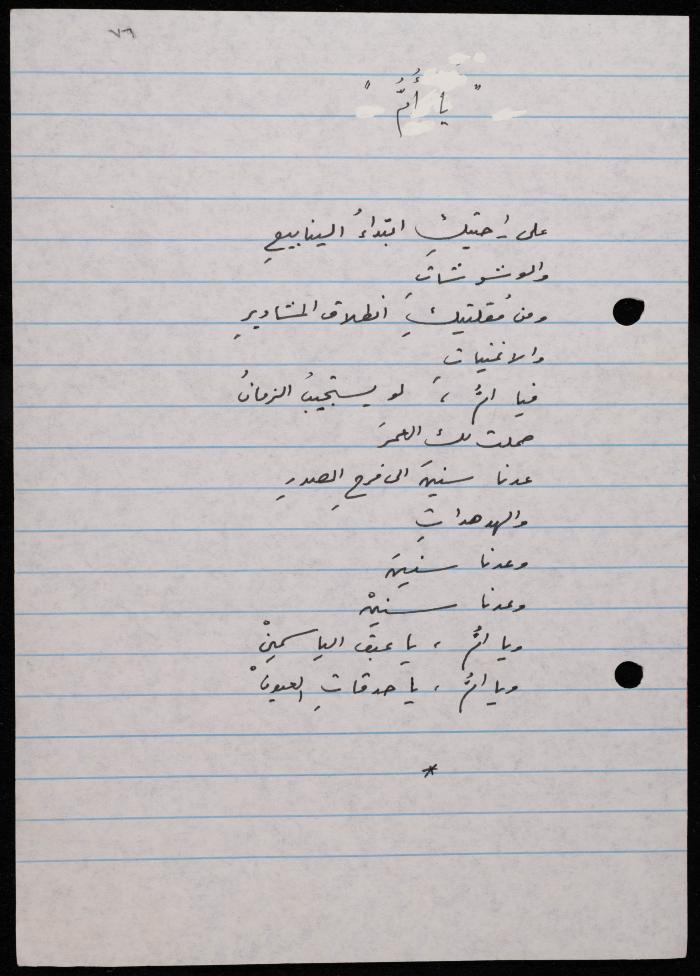 ٧٦
" يا أُمُّ "
على راحتيكِ ابتداءُ الينابيعِ
والوشوشاتِ
ومن مُقلتيكِ انطلاق المشاويرِ
والاغنياتِ
فيا امُّ ، لو يستجيبُ الزمانُ
حملت لك العمرَ
عدنا سنينَ الى فرحِ الصدرِ
والهدهداتِ
وعدنا سنينَ
وعدنا سنينْ
ويا امُّ ، يا عبَقَ الياسمينْ
ويا امُّ ، يا حدقاتِ العيونْ
*